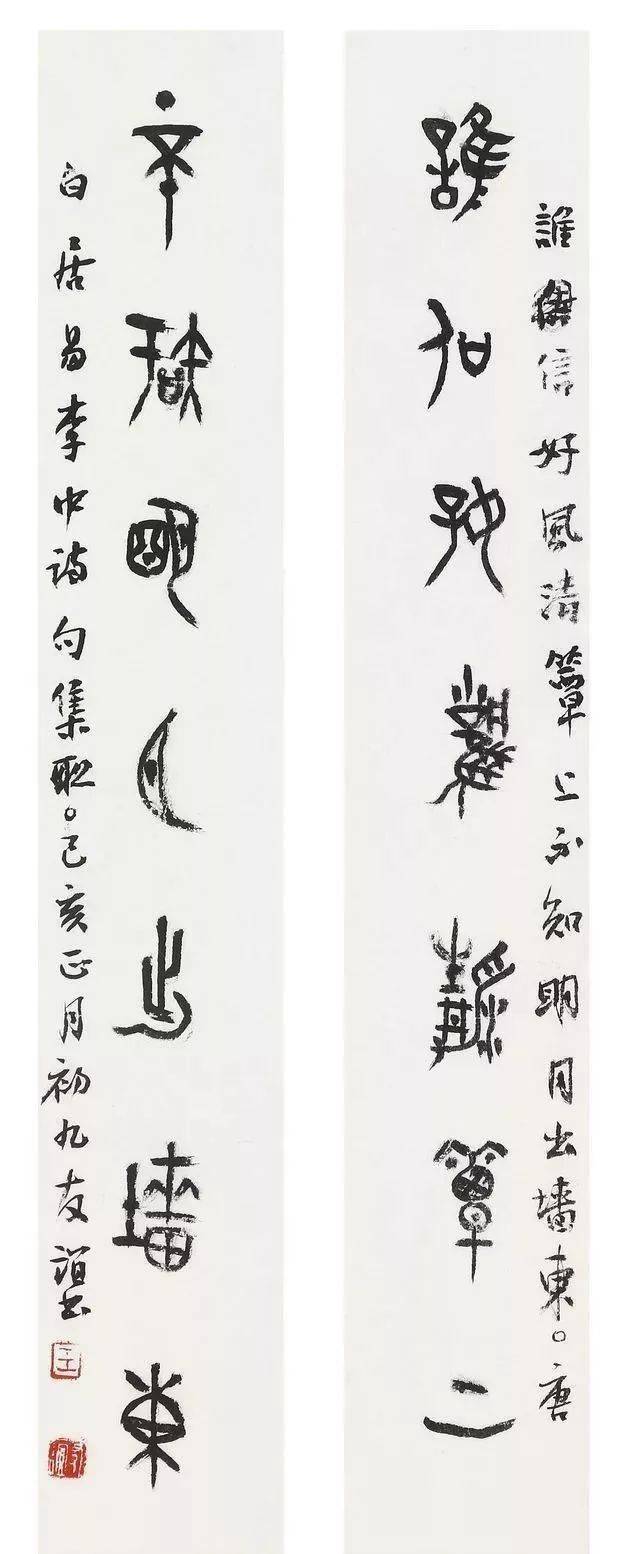 誰信好風清簟上不知明月出墻東。唐
誰信好風清簟上
不知明月出墻東
白居易李中诗句集联。己亥正月初九友谊书